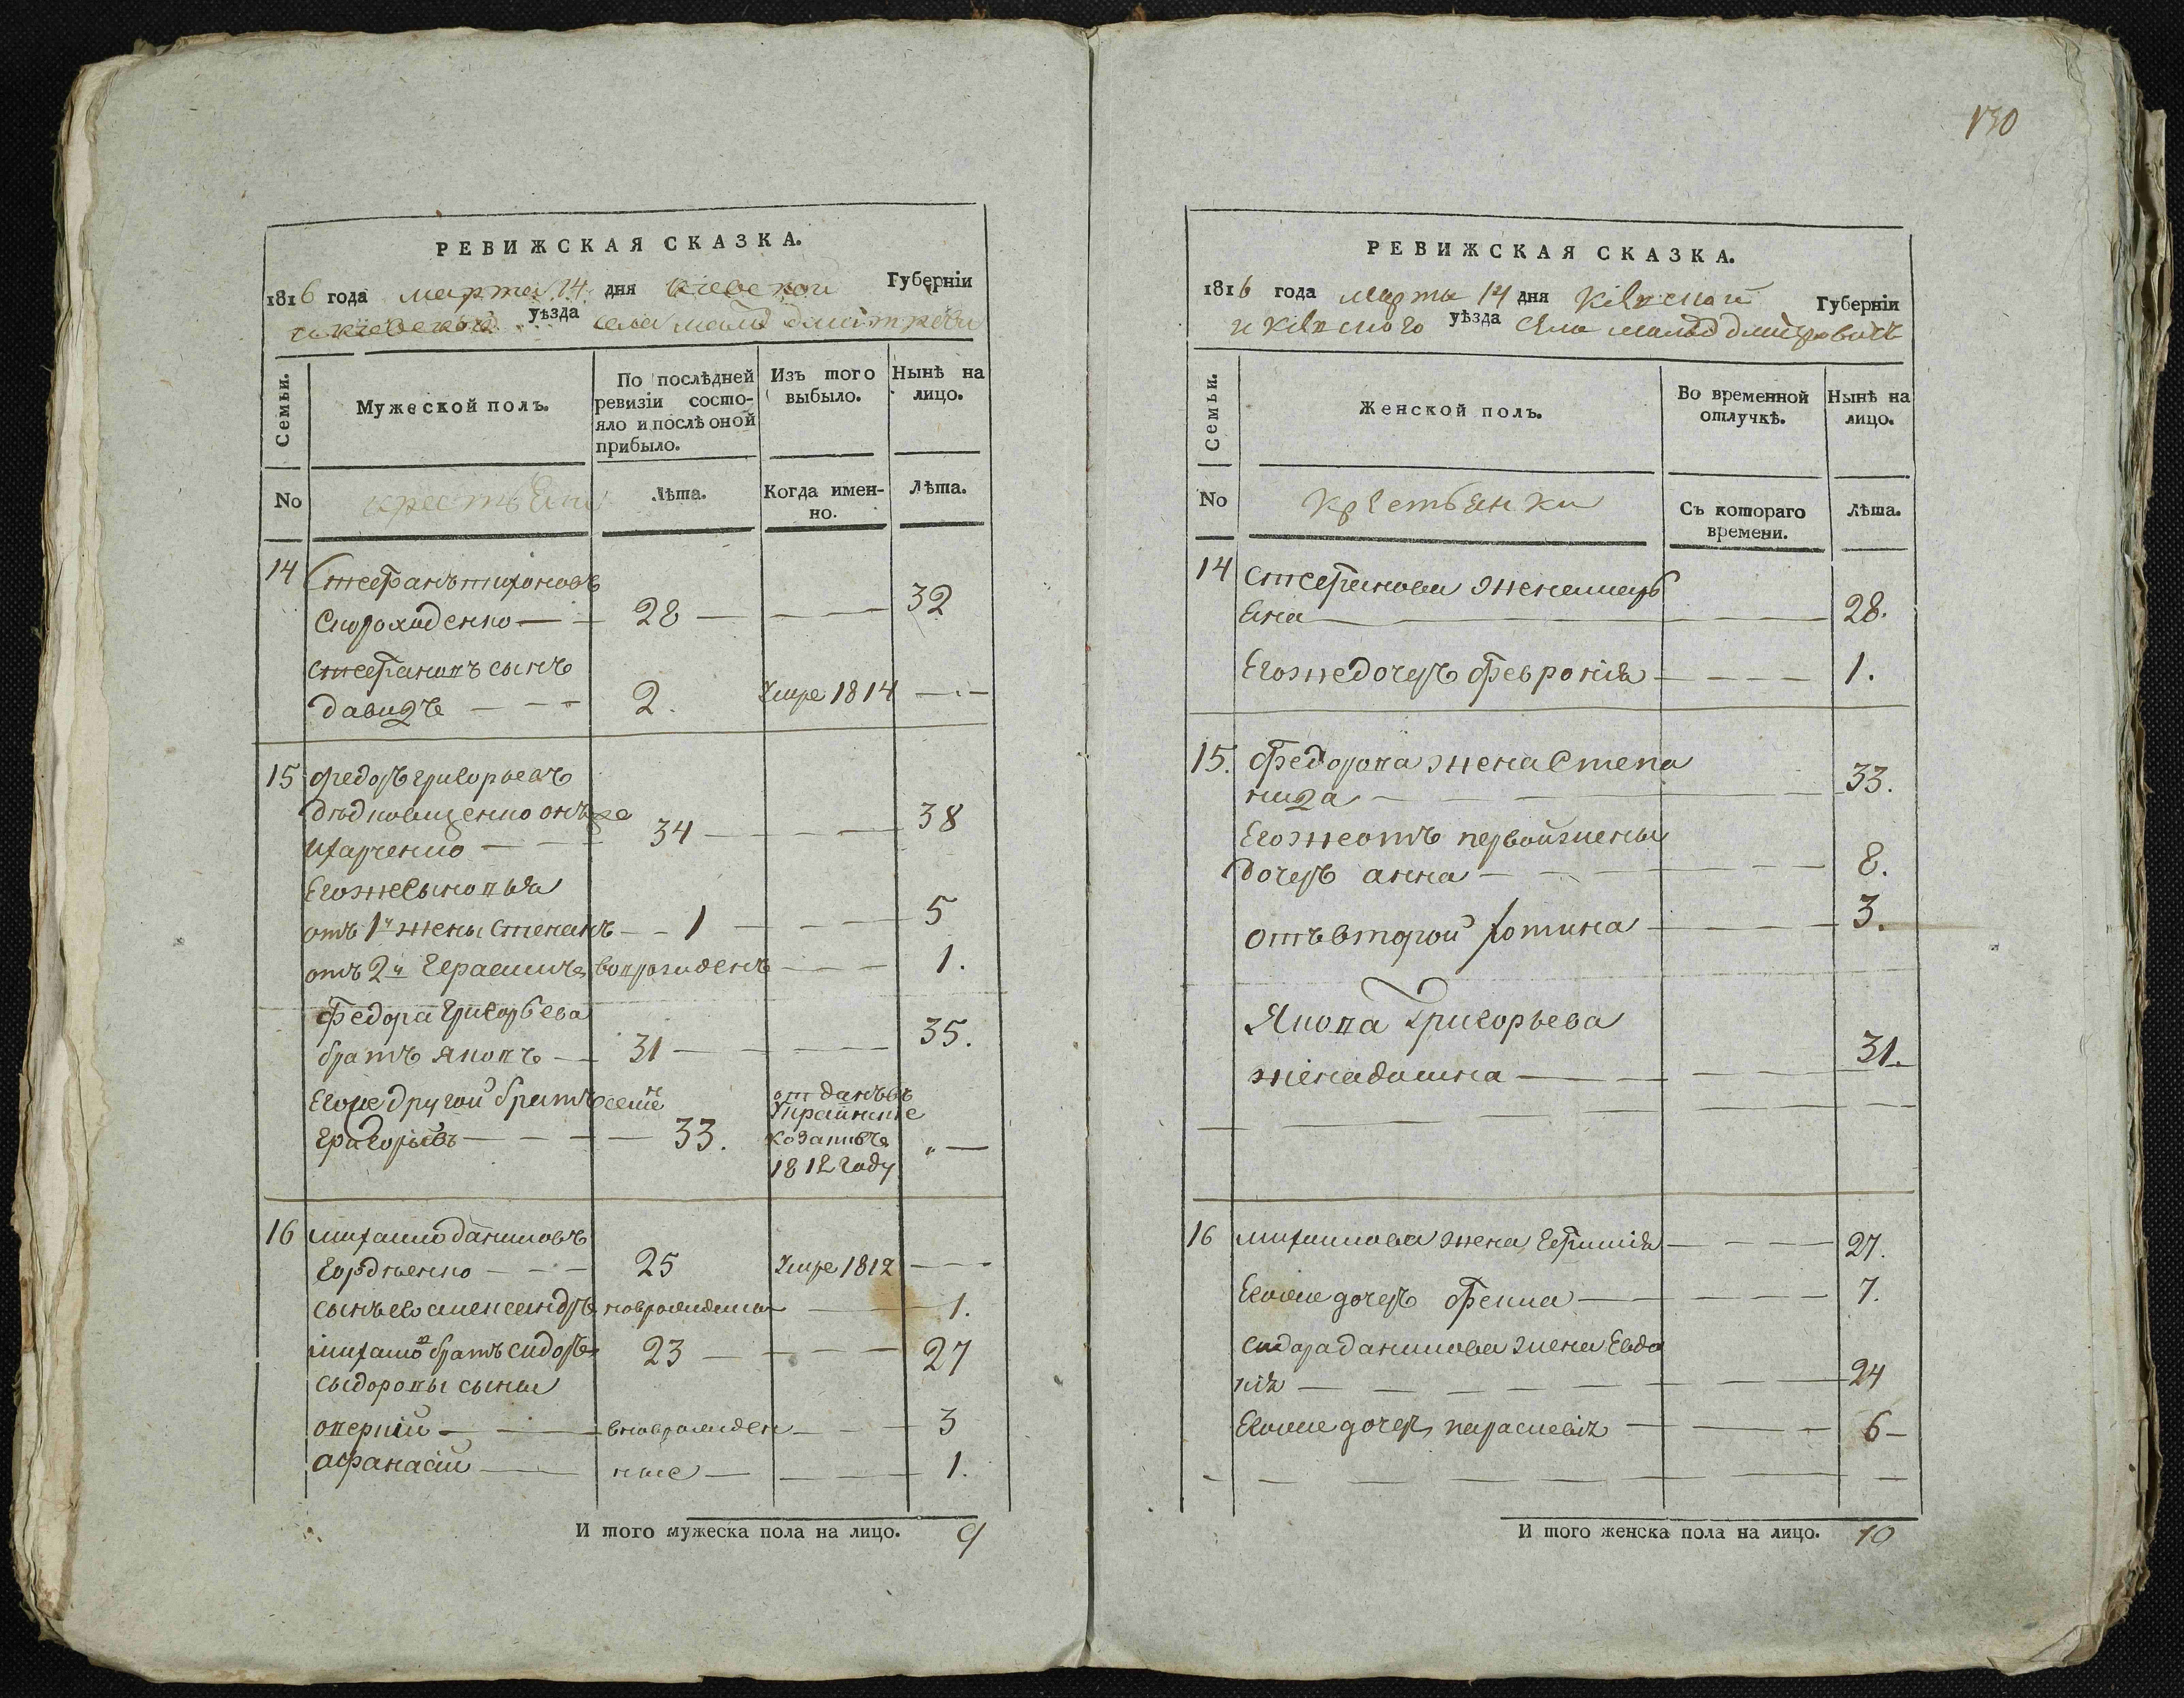 РЕВИЖСКАЯ СКАЗКА.
1816 года марта 14 дня киевской Губерніи
и киевского уѣзда села малыхъ дмитрови
Семьи.
Мужеской полъ.
По послѣдней ревизіи состояло и послѣ оной прибыло.
Изъ того выбыло.
Нынѣ на лицо.
No
крестьяне
Лѣта.
Когда именно.
Лѣта.
14 Стефанъ тихоновъ
Скороходенко — 28 — 32
стефановъ сынъ
давидъ — 2. Умре 1814 —
15 федоръ григорьевъ
дѣдковщенко онъ же
ихарченко — 34 — 38
Егоже сыновья
отъ 1й жены степанъ — 1 — 5
отъ 2й Герасимъ новорожденъ — 1.
Федора григорьева
братъ яковъ — 31 — 35.
Егоже другой братъ семенъ
григорьевъ — 33. отданъ въ
Украинские
козаки въ
1812 году „ —
16 михайло даниловъ
гордіенко — 25 Умре 1812 —
сынъ его александръ новорожденъ — 1.
михайловъ братъ сидоръ 23 — 27
сыдоровы сыны
оверкій — вноврожден — 3
афанасій — ные — 1.
И того мужеска пола на лицо. 9
130
РЕВИЖСКАЯ СКАЗКА.
1816 года марта 14 дня Кіевской Губерніи
и Кіевского уѣзда села малыхъ дмитровичъ
Семьи.
Женской полъ.
Во временной отлучкѣ.
Нынѣ на лицо.
No
крестьянки
Съ котораго времени.
Лѣта.
14 стефанова жена марь
яна — 28.
Егоже дочеръ феврониа — 1.
15. Федорова жена Степа
нида — 33.
Егоже отъ первой жены
дочеръ анна — 8.
отъ второй фотина — 3.
Якова григорьева
жена домна — 31.
16 михайлова жена Ефимия — 27.
Егоже дочеръ Фекла — 7.
сидора данилова жена Евдо
кія — 24
Егоже дочеръ параскевія — 6
И того женска пола на лицо. 10